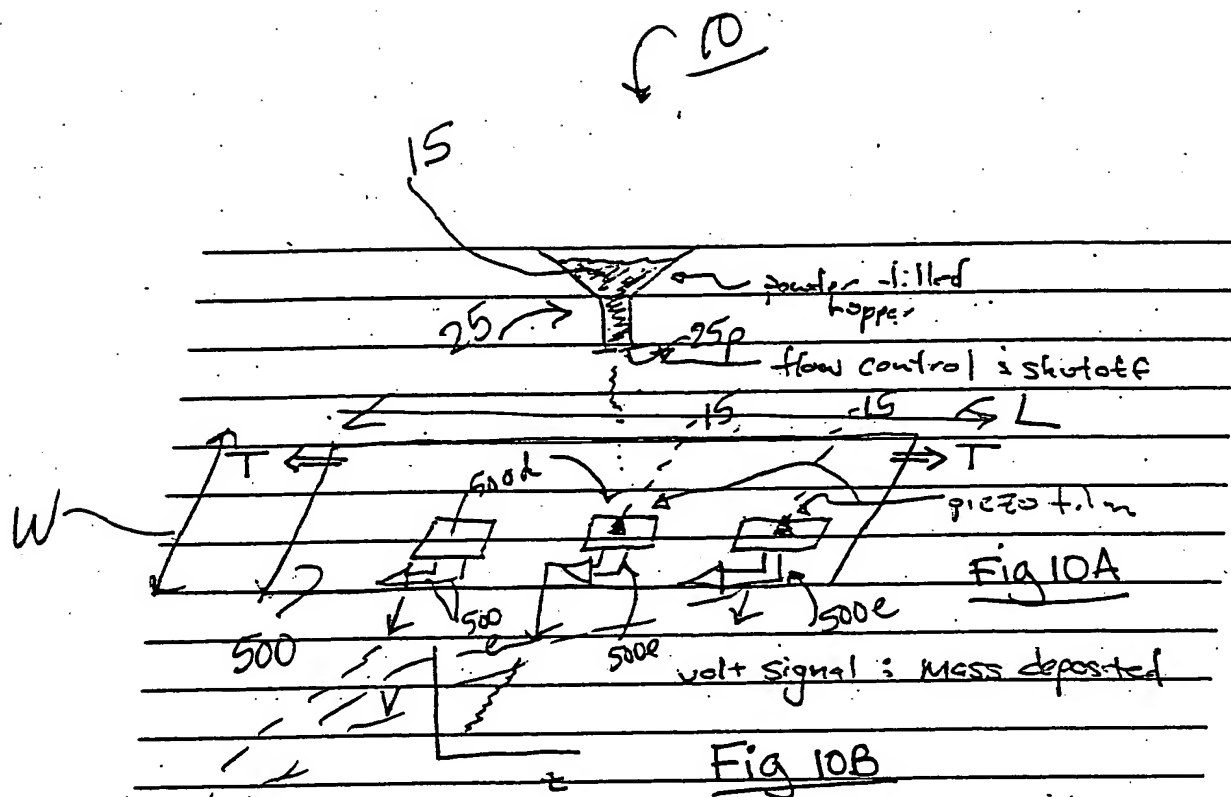 10
15
powder-filled
hopper
25
25p
flow control : shutoff
15 15 L
T T
500d
W
piezo film
Fig 10A
500 500e 500e
500
volt signal : mass deposited
V
Fig 10B
t